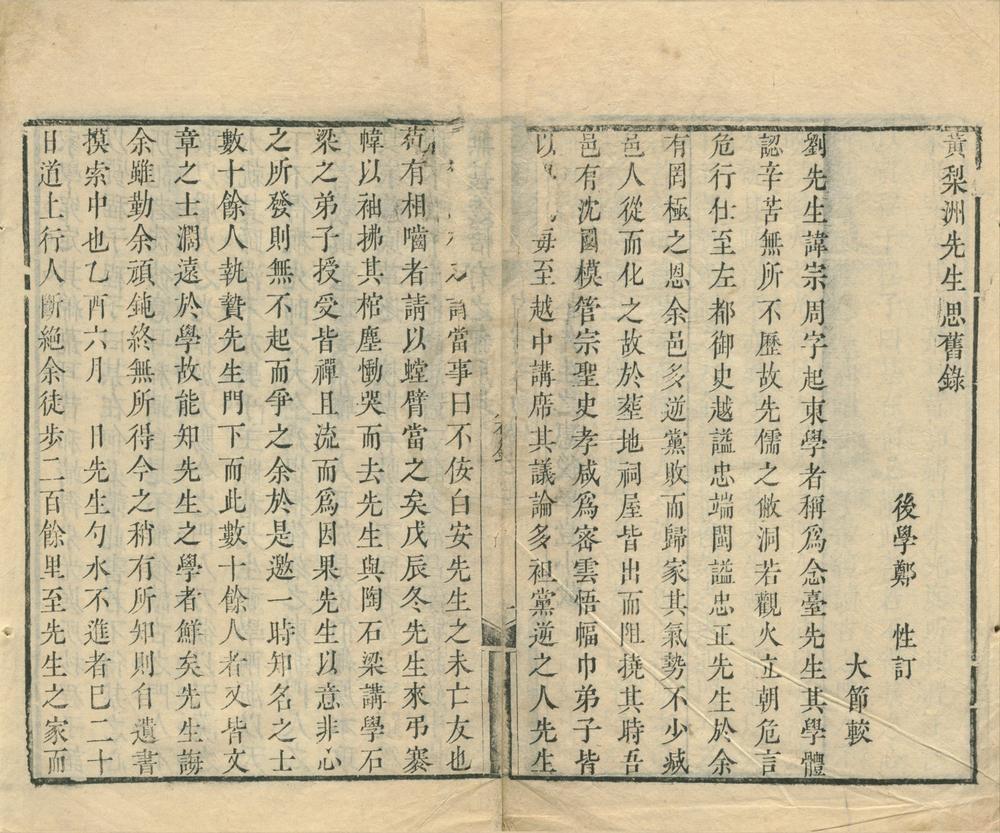 黃梨洲先生思舊錄
後學鄭 性訂
大節較
劉先生諱宗周字起東學者稱爲念臺先生其學體
認辛苦無所不歷故先儒之敝洞若觀火立朝危言
危行仕至左都御史越謚忠端閩謚忠正先生於余
有罔極之恩余邑多逆黨敗而歸家其氣勢不少衰
邑人從而化之故於塟地祠屋皆出而阻撓其時吾
邑有沈國模管宗聖史孝咸爲密雲悟幅巾弟子皆
以 每至越中講席其議論多袒黨逆之人先生
當事曰不佞白安先生之未亡友也
苟有相嚙者請以螳臂當之矣戊辰冬先生來弔褰
幃以袖拂其棺塵慟哭而去先生與陶石梁講學石
梁之弟子授受皆禪且流而爲因果先生以意非心
之所發則無不起而爭之余於是邀一時知名之士
數十餘人執贄先生門下而此數十餘人者又皆文
章之士濶遠於學故能知先生之學者鮮矣先生誨
余雖勤余頑鈍終無所得今之稍有所知則自遺書
摸索中也乙酉六月 日先生勺水不進者已二十
日道上行人斷絶余徒步二百餘里至先生之家而